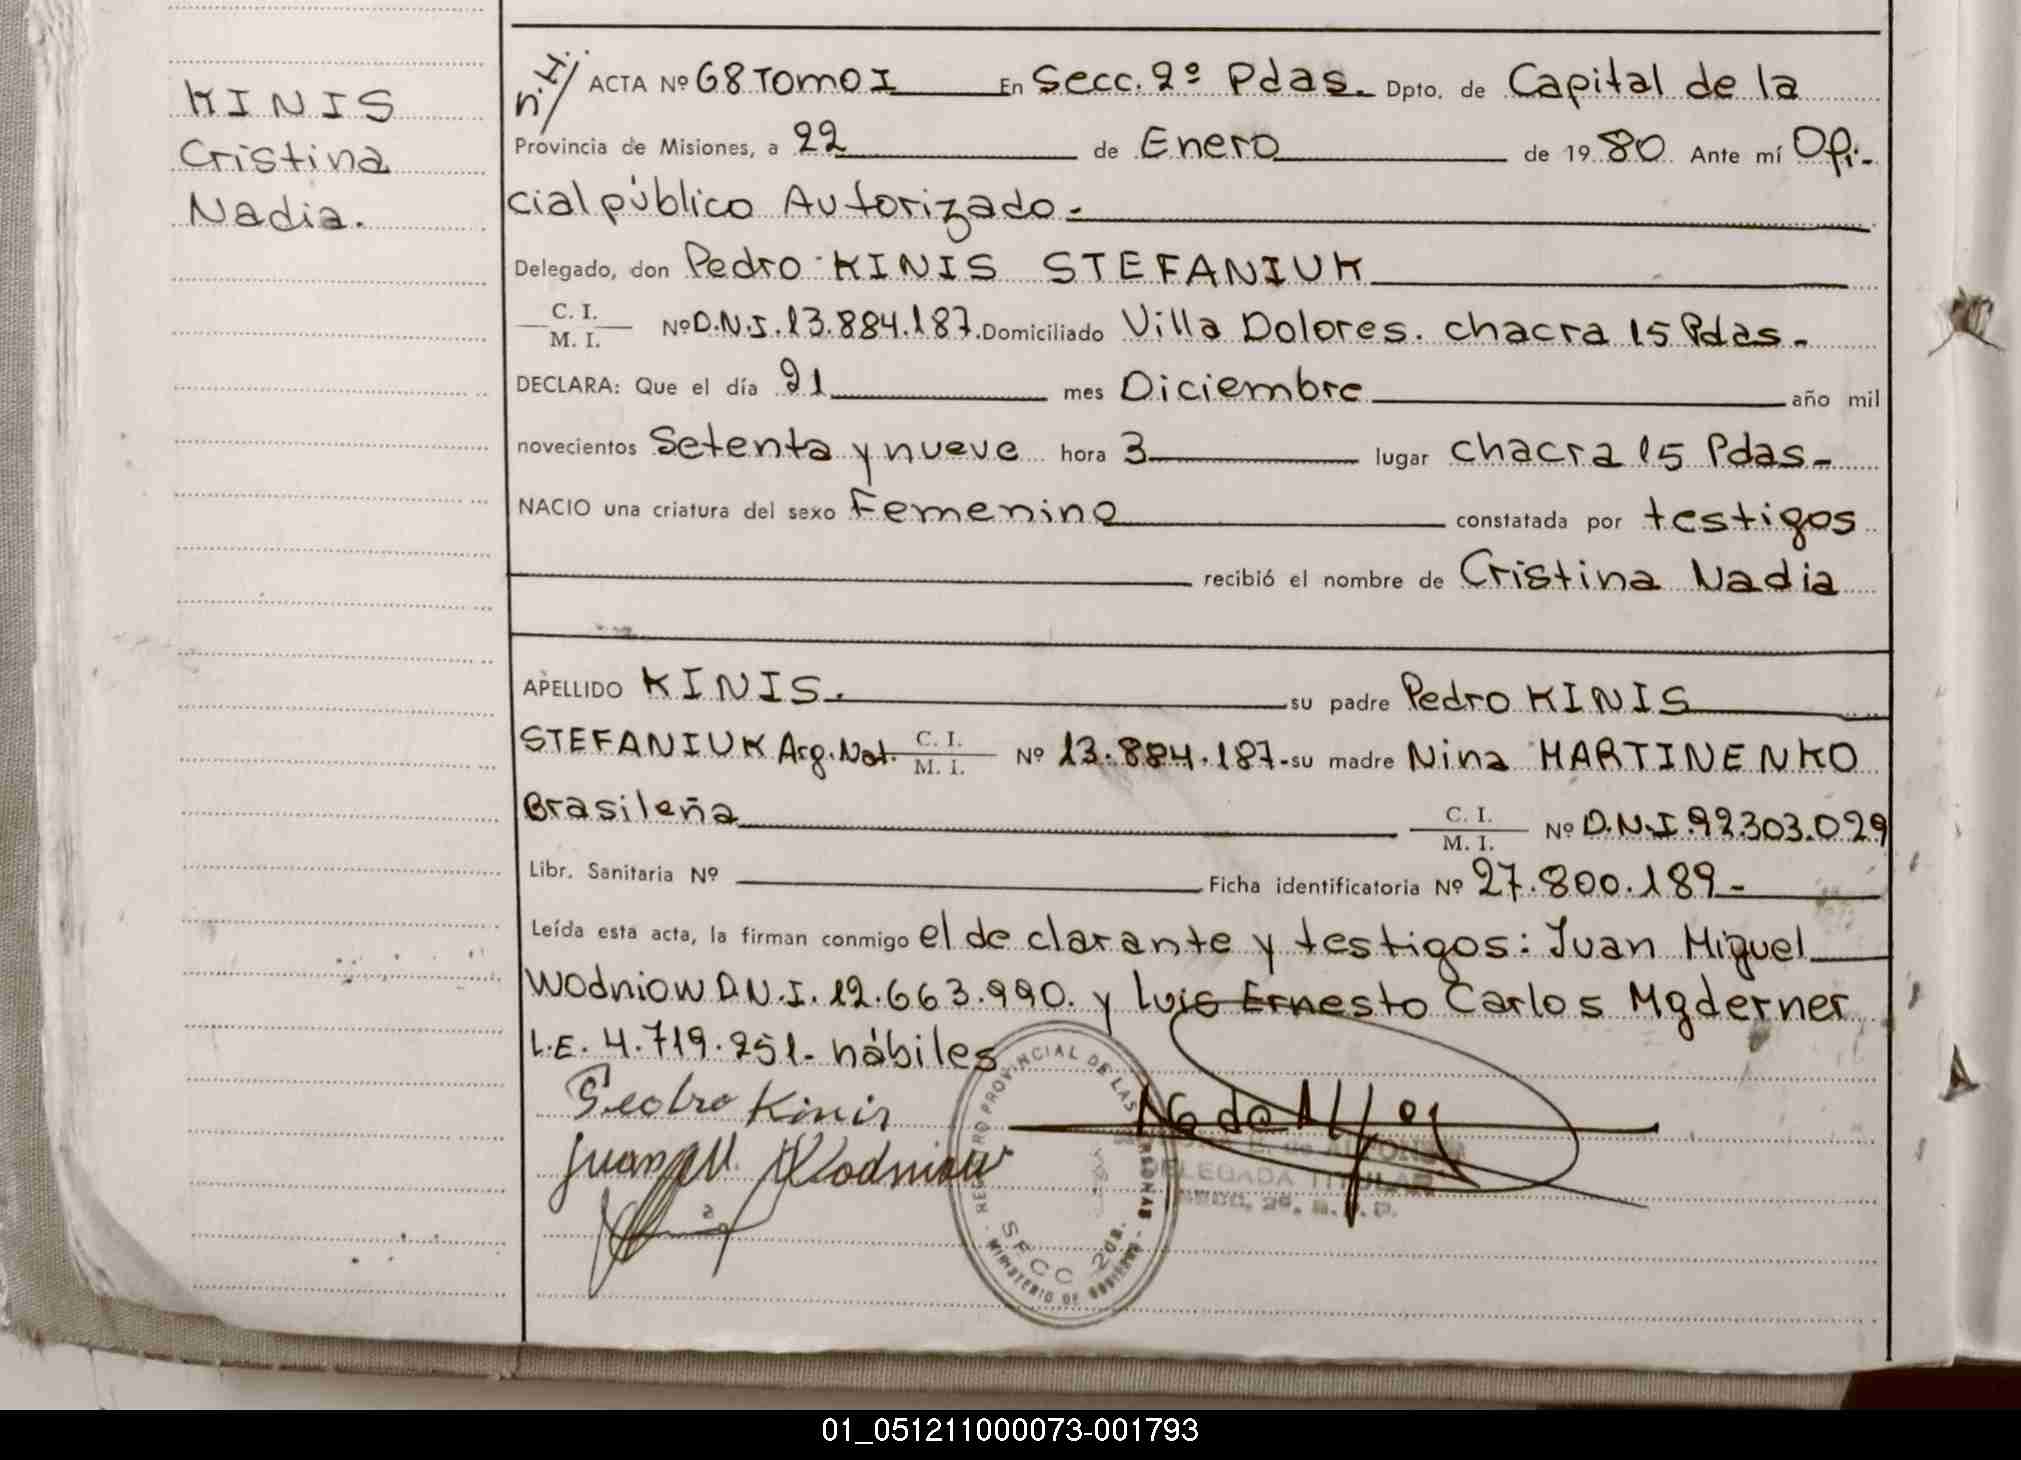 KINIS
Cristina
Nadia.
n.I./ ACTA Nº 68 Tomo I En Secc. 2º Pdas. Dpto. de Capital de la
Provincia de Misiones, a 22 de Enero de 1980 Ante mí Ofi-
cial público Autorizado.-
Delegado, don Pedro KINIS STEFANIUK
C. I.
M. I. Nº D.N.I. 13.884.187. Domiciliado Villa Dolores. chacra 15 Pdas.-
DECLARA: Que el día 21 mes Diciembre año mil
novecientos Setenta y nueve hora 3 lugar chacra 15 Pdas-
NACIO una criatura del sexo Femenino constatada por testigos
recibió el nombre de Cristina Nadia
APELLIDO KINIS. su padre Pedro KINIS
STEFANIUK Arg. Nat. C. I. M. I. Nº 13.884.187- su madre Nina MARTINENKO
Brasileña C. I. M. I. Nº D.N.I. 92.303.029
Libr. Sanitaria Nº Ficha identificatoria Nº 27.800.189-
Leída esta acta, la firman conmigo el declarante y testigos: Juan Miguel
Wodniow D.N.I. 12.663.990. y Luis Ernesto Carlos Mgderner
L.E. 4.719.251- hábiles
Pedro Kinis
Juan M. Wodniow
REGISTRO PROVINCIAL DE LAS PERSONAS
SECC 2DA.
MINISTERIO DE GOBIERNO
DELEGADA TITULAR
SECC. 2ª. R.P.P.
01_051211000073-001793